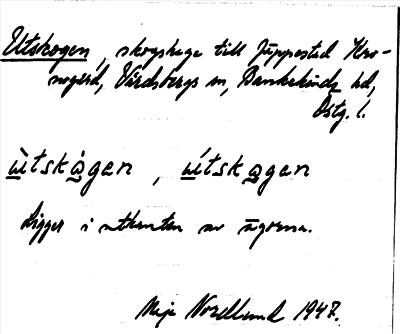 Utskogen, skogshage till Jüppestad Kro-
nogård, Vårdsbergs sn, Bankekinds hd,
Östg. l.
ùtskògen, útskogen
Ligger i utkanten av ägorna.
Maja Norellund 1947.